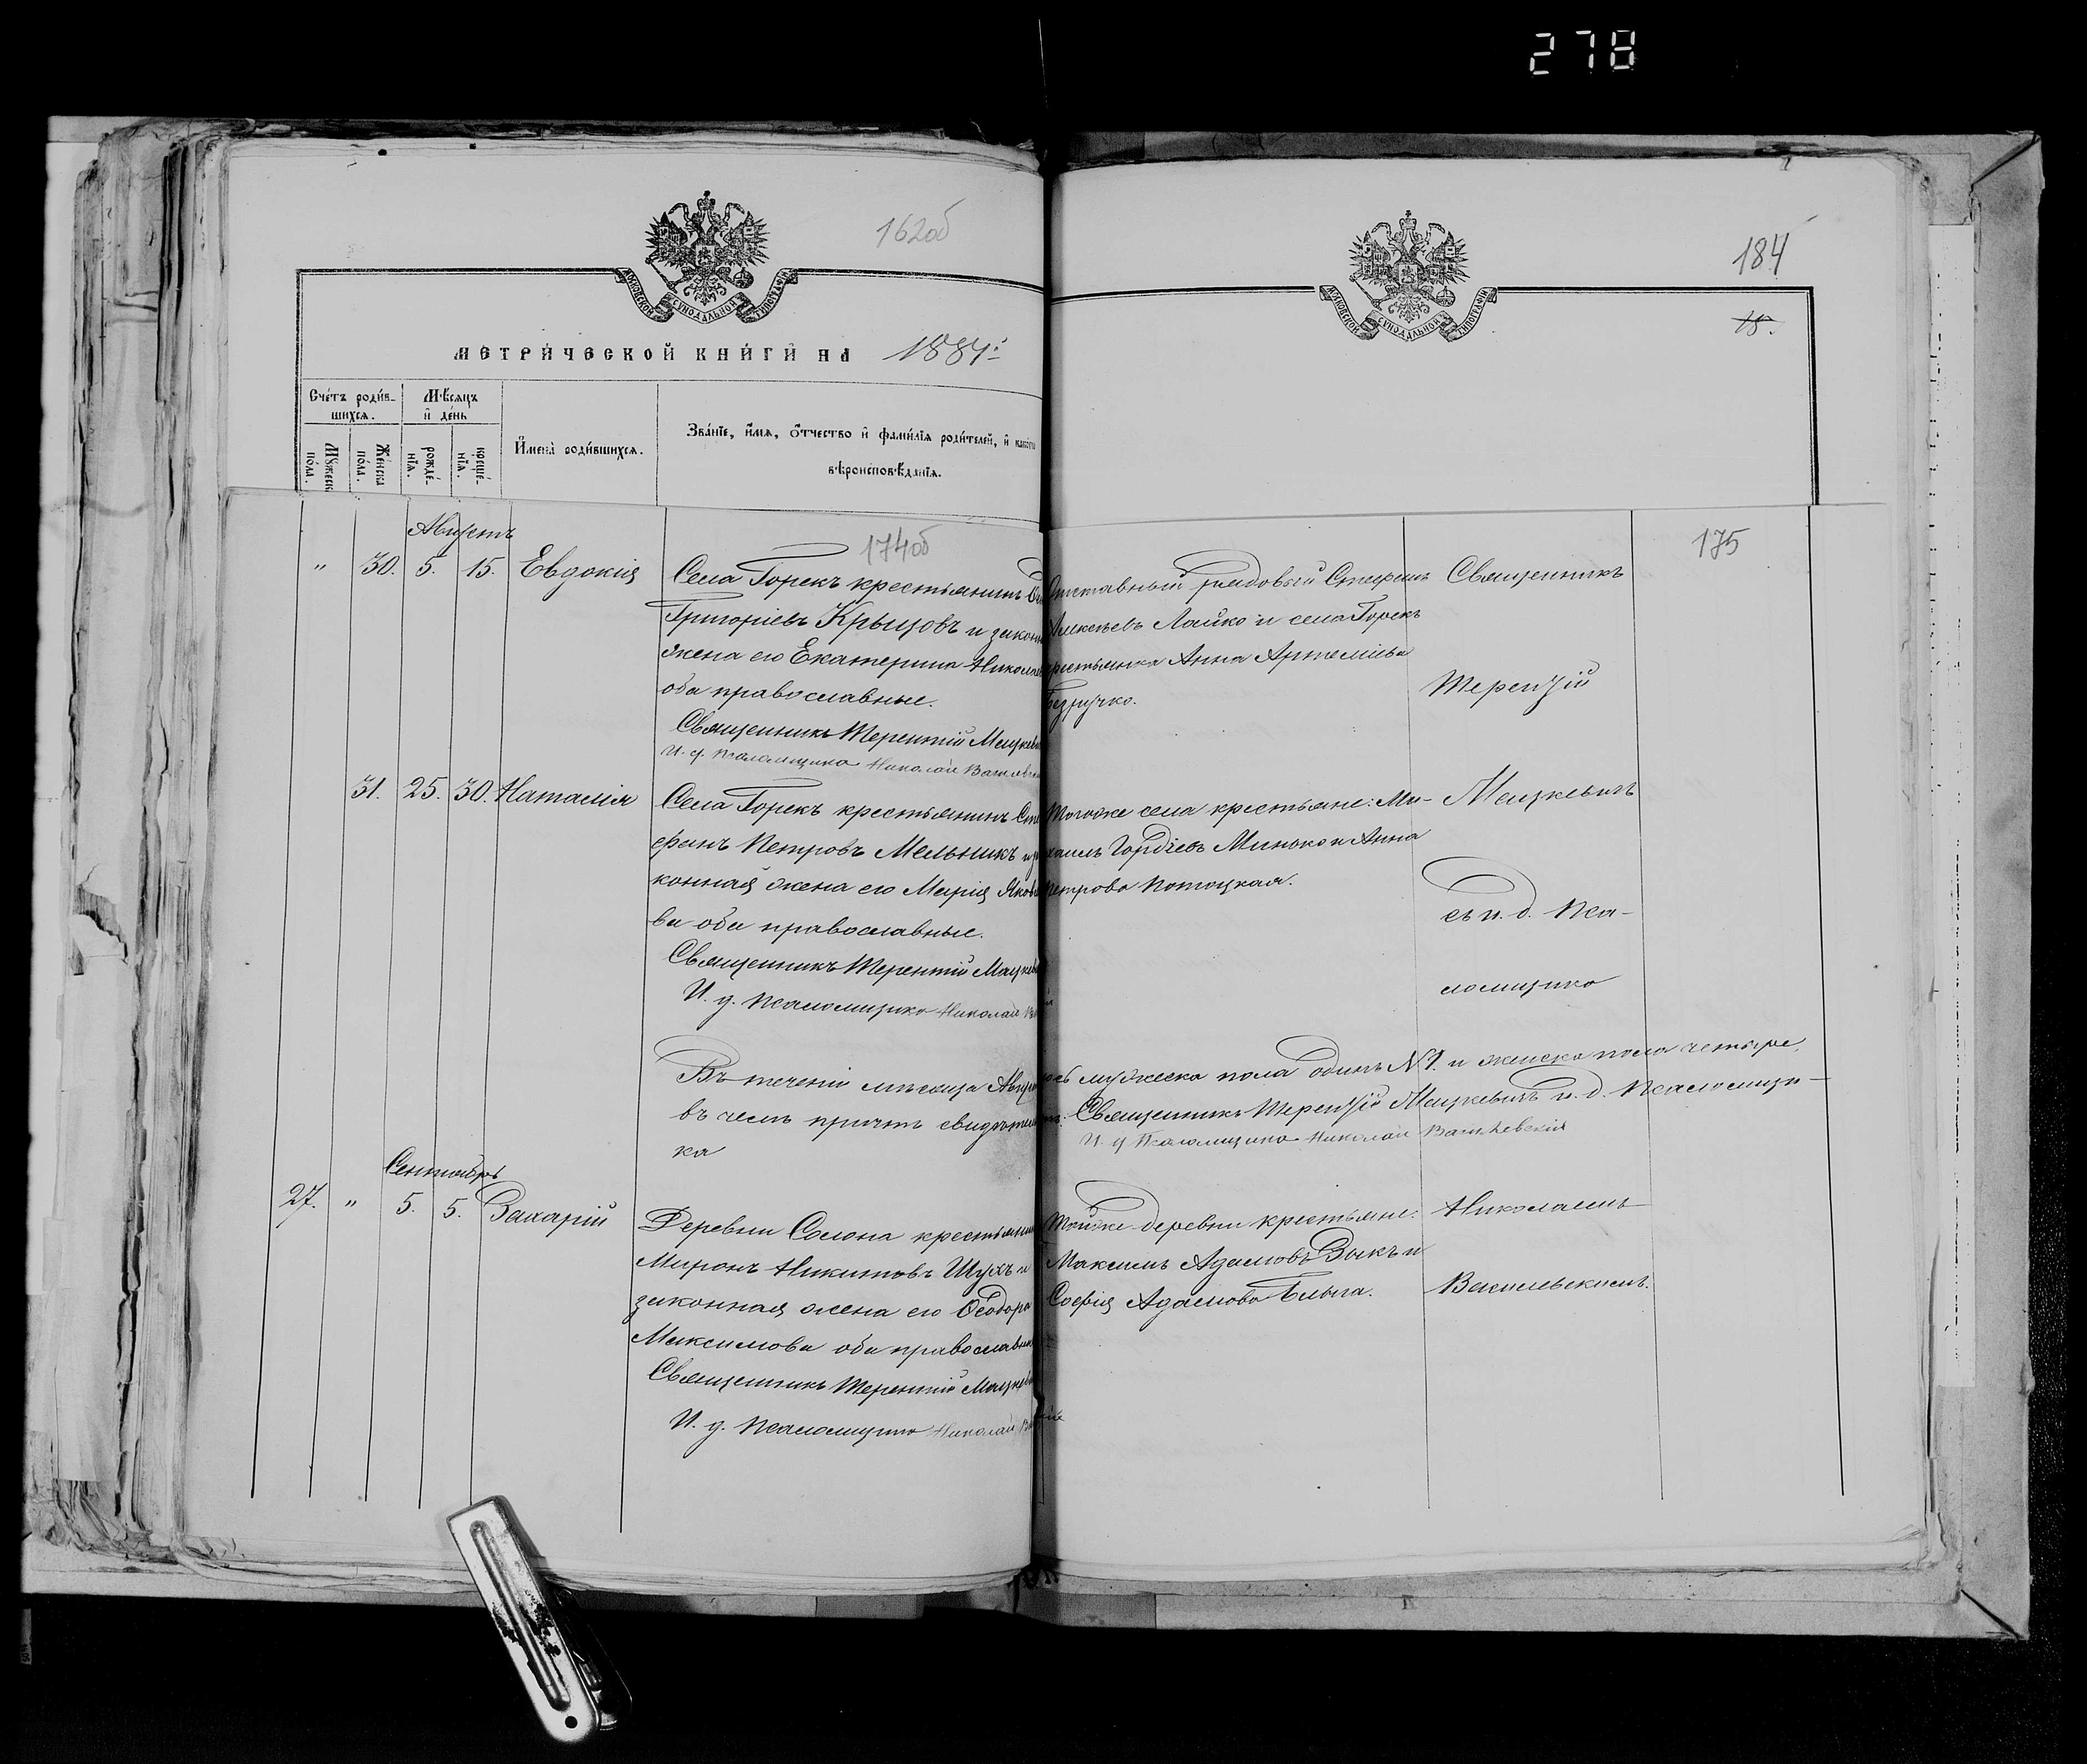 278
162об
184
18.
МОСКОВСКОЙ СѴНОДАЛЬНОЙ ТИПОГРАФІИ
МОСКОВСКОЙ СѴНОДАЛЬНОЙ ТИПОГРАФІИ
МЕТРИ́ЧЕСКОЙ КНИ́ГИ НА 1884 г.
Сче́тъ роди́в-
шихся.
Мѣ́сяцъ
и де́нь
Мꙋ́жеска
по́ла.
Же́нска
по́ла.
рожде́-
нїѧ.
креще́-
нїѧ.
И҆мена̀ роди́вшихся.
Зва́нїе, и҆́мѧ, ѻ҆́тчество и҆ фами́лїѧ роди́телей, и҆ како́гѡ
вѣроисповѣ́данїѧ.
174об
175
Августъ
" 30. 5. 15. Евдокія
Села Горекъ крестьянинъ
Григоріевъ Крыцовъ и закон
жена его Екатерина Николае
оба православные.
Священникъ Терентій Мацкеви
И. д. Псаломщика Николай
Отставный рядовый Стефанъ
Алексѣевъ Лайко и села Горекъ
крестьянка Анна Артеміева
Безручко.
Священникъ
Терентій
31. 25. 30. Наталія
Села Горекъ крестьянинъ Сте
фанъ Петровъ Мельникъ и за
конная жена его Марія Яковле
ва оба православные.
Священникъ Терентій Мацкеви
И. д. Псаломщика Николай
Тогоже села крестьяне: Ми-
хаилъ Гордіевъ Минько и Анна
Петрова Потоцкая.
Мацкевичъ
съ и. д. Пса-
ломщика
Въ теченіи мѣсяца Августа
лось мужеска пола одинъ №1. и женска пола четыре,
въ чемъ причтъ свидѣтель
Священникъ Терентій Мацкевичъ и. д. Псаломщи-
ка
И. д. Псаломщика Николай
Сентябрь
27. " 5. 5. Захарій
Деревни Солона крестьянинъ
Миронъ Никитовъ Шухъ и
законная жена его Ѳеодора
Максимова оба православные
Священникъ Терентій Мацкеви
И. д. Псаломщика Николай
Тойже деревни крестьяне:
Максимъ Адамовъ Зыкъ и
Софія Адамова Бѣлга.
Николаемъ
Васильевскимъ.